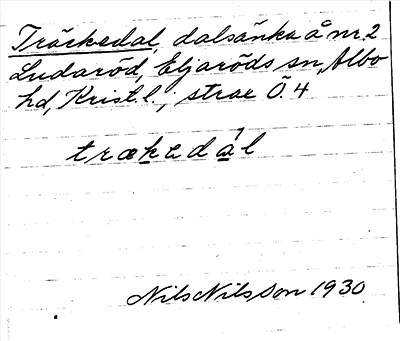 Träckedal, dalsänka å nr. 2
Ludaröd, Eljaröds sn, Albo
hd, Krist. l., strax Ö. 4
trækedál
Nils Nilsson 1930